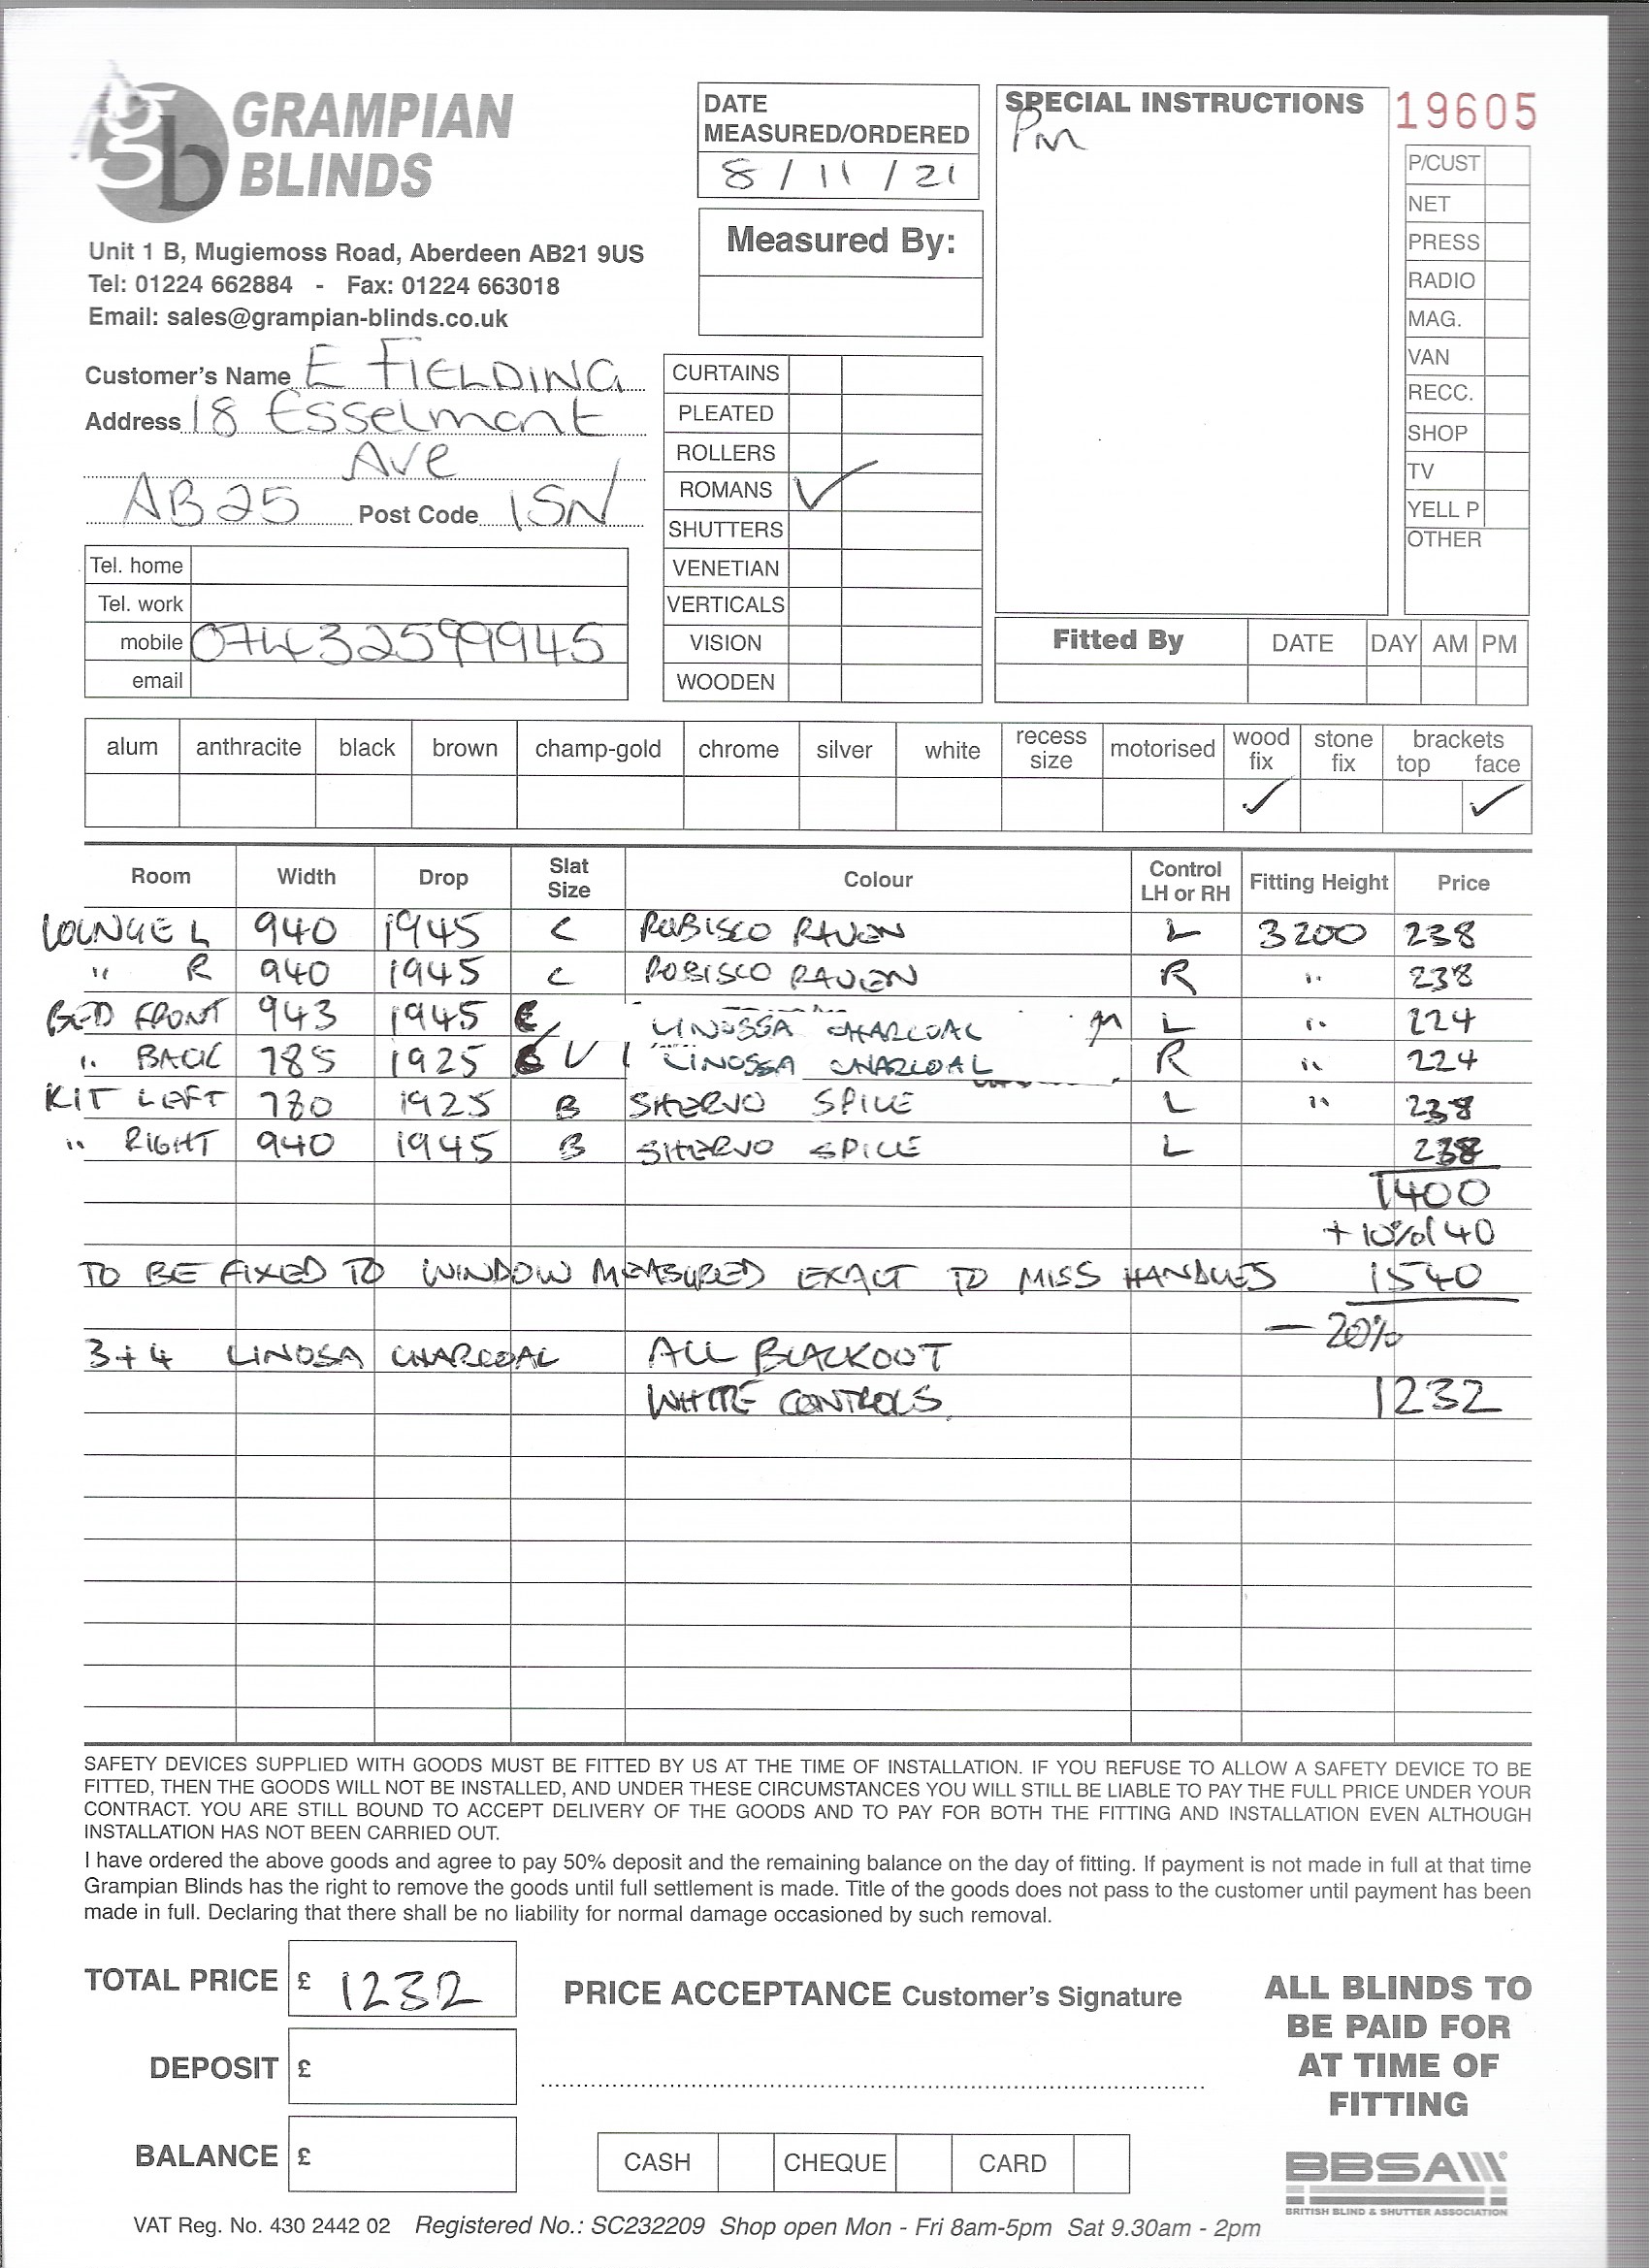 GRAMPIAN
BLINDS
gb
Unit 1 B, Mugiemoss Road, Aberdeen AB21 9US
Tel: 01224 662884 - Fax: 01224 663018
Email: sales@grampian-blinds.co.uk
DATE
MEASURED/ORDERED
8 / 11 / 21
Measured By:
SPECIAL INSTRUCTIONS
Pm
19605
P/CUST
NET
PRESS
RADIO
MAG.
VAN
RECC.
SHOP
TV
YELL P
OTHER
Customer's Name E FIELDING
Address 18 Esselmont
Ave
AB25 Post Code 1SN
Tel. home
Tel. work
mobile 07432599945
email
CURTAINS
PLEATED
ROLLERS
ROMANS ✓
SHUTTERS
VENETIAN
VERTICALS
VISION
WOODEN
Fitted By DATE DAY AM PM
alum anthracite black brown champ-gold chrome silver white recess size motorised wood fix stone fix brackets top face
✓ ✓
Room Width Drop Slat Size Colour Control LH or RH Fitting Height Price
LOUNGE L 940 1945 C ROBISCO RAVEN L 3200 238
" R 940 1945 C ROBISCO RAVEN R " 238
BED FRONT 943 1945 LINOSSA CHARCOAL L " 224
" BACK 785 1925 LINOSSA CHARCOAL R " 224
KIT LEFT 780 1925 B SHERVO SPICE L " 238
" RIGHT 940 1945 B SHERVO SPICE L 238
1400
+ 10% 140
TO BE FIXED TO WINDOW MEASURED EXACT TO MISS HANDLES 1540
- 20%
3+4 LINOSA CHARCOAL ALL BLACKOUT
WHITE CONTROLS 1232
SAFETY DEVICES SUPPLIED WITH GOODS MUST BE FITTED BY US AT THE TIME OF INSTALLATION. IF YOU REFUSE TO ALLOW A SAFETY DEVICE TO BE
FITTED, THEN THE GOODS WILL NOT BE INSTALLED, AND UNDER THESE CIRCUMSTANCES YOU WILL STILL BE LIABLE TO PAY THE FULL PRICE UNDER YOUR
CONTRACT. YOU ARE STILL BOUND TO ACCEPT DELIVERY OF THE GOODS AND TO PAY FOR BOTH THE FITTING AND INSTALLATION EVEN ALTHOUGH
INSTALLATION HAS NOT BEEN CARRIED OUT.
I have ordered the above goods and agree to pay 50% deposit and the remaining balance on the day of fitting. If payment is not made in full at that time
Grampian Blinds has the right to remove the goods until full settlement is made. Title of the goods does not pass to the customer until payment has been
made in full. Declaring that there shall be no liability for normal damage occasioned by such removal.
TOTAL PRICE £ 1232
DEPOSIT £
BALANCE £
PRICE ACCEPTANCE Customer's Signature
CASH CHEQUE CARD
ALL BLINDS TO
BE PAID FOR
AT TIME OF
FITTING
BBSA
BRITISH BLIND & SHUTTER ASSOCIATION
VAT Reg. No. 430 2442 02 Registered No.: SC232209 Shop open Mon - Fri 8am-5pm Sat 9.30am - 2pm